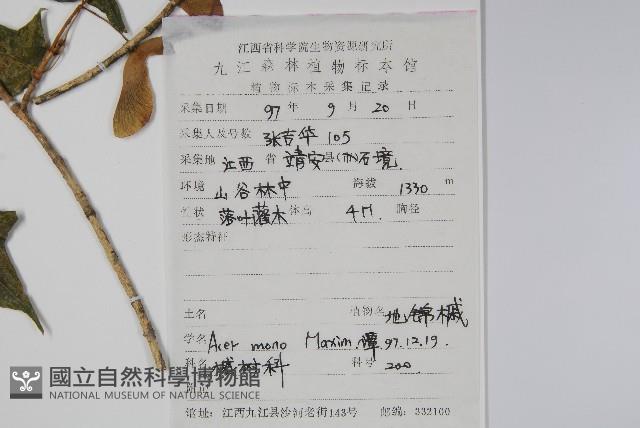 江西省科学院生物资源研究所
九江森林植物标本馆
植物标本采集记录
采集日期 97 年 9 月 20 日
采集人及号数 张吉华 105
采集地 江西 省 靖安县(市)石境
环境 山谷林中 海拔 1330 m
性状 落叶灌木 体高 4m 胸径
形态特征
土名 植物名 地锦槭
学名 Acer mono Maxim. 谭 97.12.19.
科名 槭树科 科号 200
附记
馆址: 江西九江县沙河老街143号 邮编: 332100
國立自然科學博物館
NATIONAL MUSEUM OF NATURAL SCIENCE